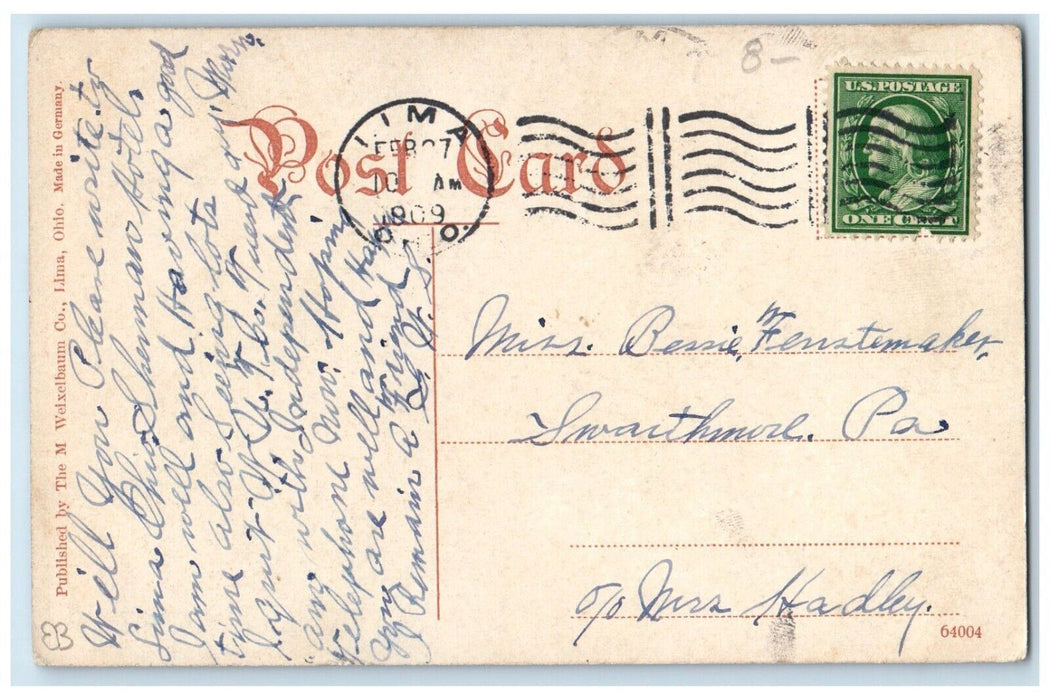 Published by The M Weixelbaum Co., Lima, Ohio. Made in Germany.
Post Card
LIMA
FEB 27
10 AM
1909
O.
8-
U.S. POSTAGE
ONE CENT
Will You Please write to
Lima Ohio Sherman Hotel.
I am well and Having a good
time also Seeing lots
I quit
any with the Independent
Telephone Hoping
you are well and Happy
I Remain a Friend
Miss. Bessie, W Fenstemaker,
Swarthmore. Pa
c/o Mrs Hadley.
64004
EB